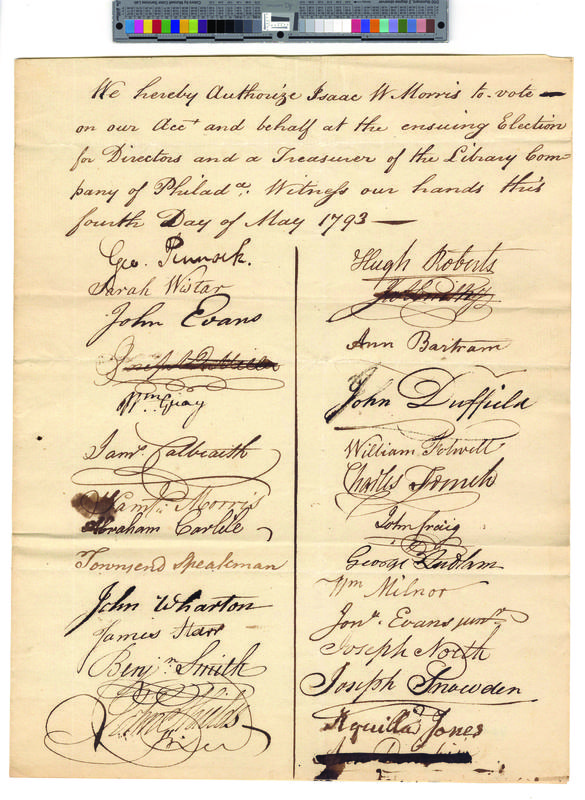 We hereby Authorize Isaac W Morris to vote —
on our Acct and behalf at the ensuing Election
for Directors and a Treasurer of the Library Com=
pany of Philada: Witness our hands this
fourth Day of May 1793 —
Geo. Pennock.
Sarah Wistar
John Evans
Wm. Gray
Jams Calbraith
Saml. Morris
Abraham Carlile
Townsend Speakman
John Wharton
James Starr
Benjn Smith
Hugh Roberts
Ann Bartram
John Duffield
William Folwell
Charles
John Craig
George Ludlam
Wm Milnor
Jonn. Evans junr.
Joseph North
Joseph Snowden
Aquilla Jones